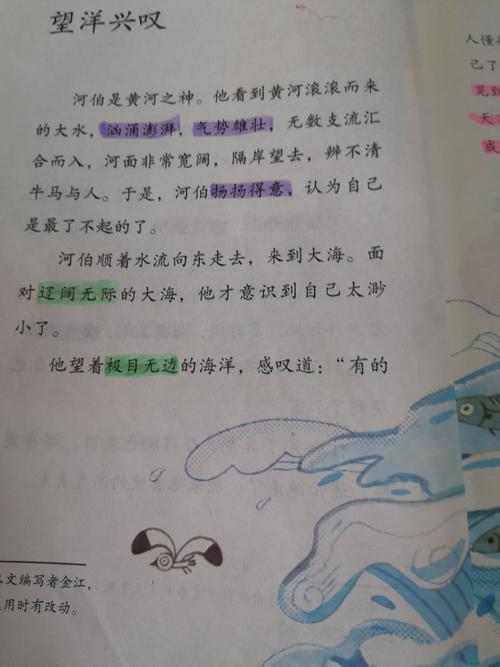 望洋兴叹
河伯是黄河之神。他看到黄河滚滚而来
的大水，汹涌澎湃，气势雄壮，无数支流汇
合而入，河面非常宽阔，隔岸望去，辨不清
牛马与人。于是，河伯扬扬得意，认为自己
是最了不起的了。
河伯顺着水流向东走去，来到大海。面
对辽阔无际的大海，他才意识到自己太渺
小了。
他望着极目无边的海洋，感叹道：“有的
文编写者金江，
用时有改动。
人懂得
已了
见到